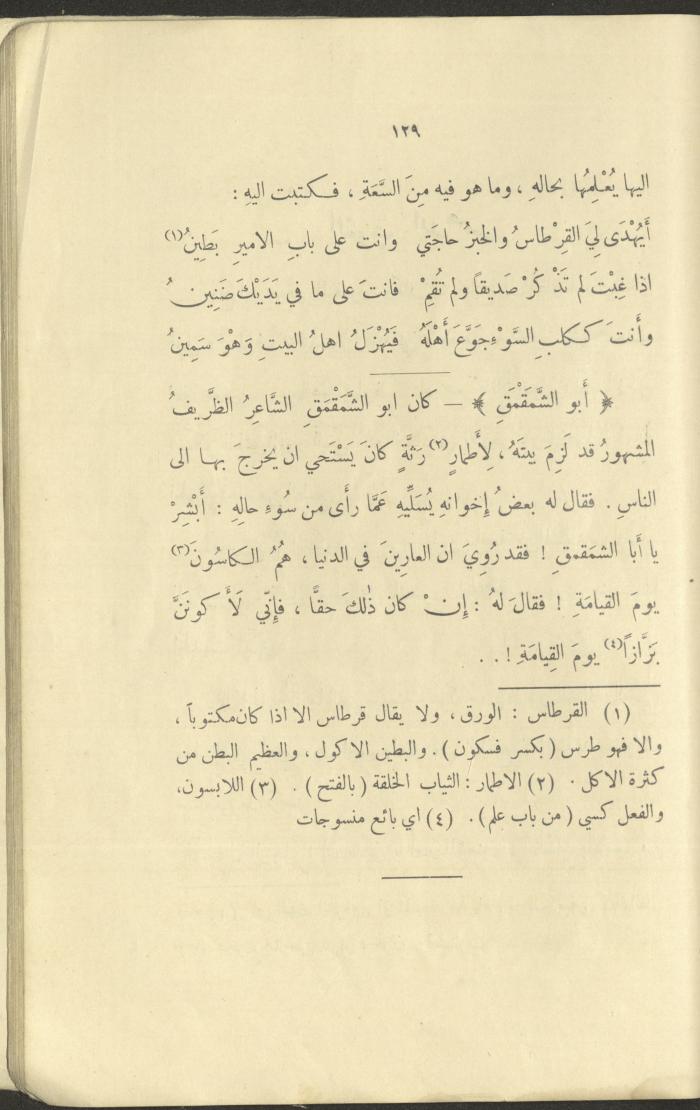 ١٢٩
اليها يُعْلِمُها بحالهِ ، وما هو فيه مِنَ السَّعَةِ ، فـكتبت اليهِ :
أَيُهْدَى لِيَ القِرْطاسُ والخبزُ حاجَتي وانت على بابِ الاميرِ بَطِينُ(١)
اذا غِبْتَ لم تَذْكُرْ صَديقاً ولم تُقِمْ فانتَ على ما في يَدَيْكَ ضَنِينُ
وأَنتَ كـكلبِ السَّوْءِ جَوَّعَ أَهْلَهُ فَيُهْزَلُ اهلُ البيتِ وَهْوَ سَمِينُ
﴿ أَبو الشَّمَقْمَقِ ﴾ — كان ابو الشَّمَقْمَقِ الشَّاعِرُ الظَّريفُ
المشهورُ قد لَزِمَ بيتَهُ ، لِأَطمارٍ(٢) رَثَّةٍ كانَ يَسْتَحي ان يخرجَ بهـا الى
الناسِ . فقال له بعضُ إِخوانهِ يُسَلِّيهِ عَمَّا رأَى من سُوءِ حالِهِ : أَبْشِرْ
يا أَبا الشمَقمقِ ! فقد رُوِيَ ان العارِينَ في الدنيا ، هُمُ الـكاسُونَ(٣)
يومَ القيامَةِ ! فقالَ لهُ : إِنْ كان ذٰلكَ حقًّا ، فإِنّي لَأَكونَنَّ
بَزَّازاً(٤) يومَ القِيامَةِ ! . .
(١) القرطاس : الورق ، ولا يقال قرطاس الا اذا كان مكتوباً ،
والا فهو طرس ( بكسر فسكون ) . والبطين الاكول ، والعظيم البطن من
كثرة الاكل . (٢) الاطمار : الثياب الخلقة ( بالفتح ) . (٣) اللابسون ،
والفعل كسي ( من باب علم ) . (٤) اي بائع منسوجات